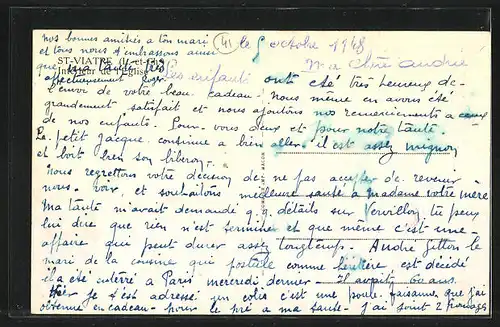 nos bonnes amitiés à ton mari
et tous nous t'embrassons ainsi
que ma tante très
affectueusement
ST-VIATRE (L.-et-Ch.)
Intérieur de l'Église
41
le 5 octobre 1948
Ma chère André
Les enfants ont été très heureux de
l'envoi de votre beau cadeau. Nous même en avons été
grandement satisfait et nous ajoutons nos remerciements à ceux
de nos enfants. Pour vous deux et pour notre tante.
Le petit Jacque continue à bien aller. il est assez mignon
et boit bien son biberon.
Nous regrettons votre décision de ne pas accepter de revenir
nous voir, et souhaitons meilleure santé à madame votre mère
Ma tante m'avait demandé q.q. détails sur tu peux
lui dire que rien n'est terminé et que même c'est une
affaire qui peut durer assez longtemps. André le
mari de la cousine qui comme héritière est décédé
il a été enterré à Paris mercredi dernier il avait 60 ans.
Hier je t'ai adressé un colis c'est une poule faisane que j'ai
obtenue en cadeau pour le pré a ma tante. j'ai joint 2 fromages